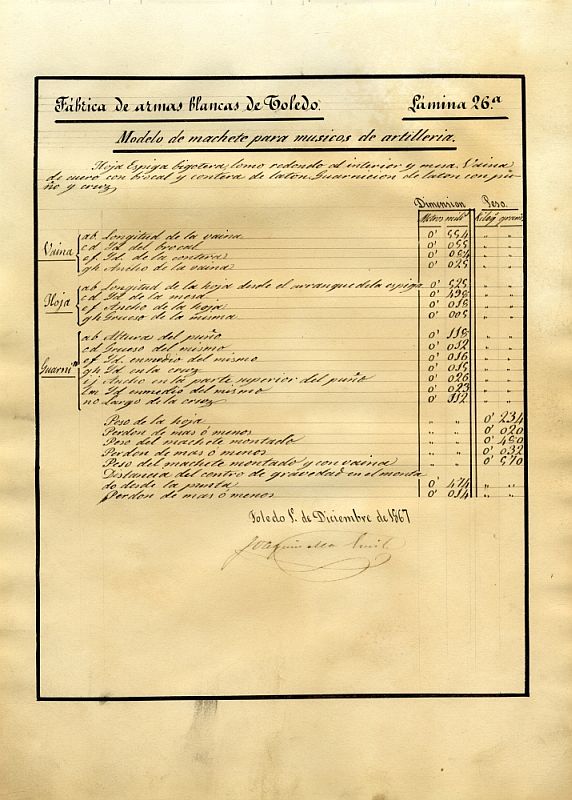 Fábrica de armas blancas de Toledo. Lámina 26.a
Modelo de machete para musicos de artilleria.
Hoja Espiga bigotera, lomo redondo al interior y mesa. Vaina
de cuero con brocal y contera de laton. Guarnicion de laton con pu-
ño y cruz
Dimension Peso.
Metros mils Kilogs grams
Vaina
ab Longitud de la vaina 0' 554 " "
cd Id. del brocal 0' 055 " "
ef Id. de la contera 0' " "
gh Ancho de la vaina 0' 025 " "
Hoja
ab Longitud de la hoja desde el arranque de la espiga 0' 525 " "
cd Id. de la mesa 0' 498 " "
ef Ancho de la hoja 0' 018 " "
gh Grueso de la misma 0' 005 " "
Guarnion
ab Altura del puño 0' 118 " "
cd Grueso del mismo 0' 012 " "
ef Id. enmedio del mismo 0' 016 " "
gh Id. en la cruz 0' 015 " "
ij Ancho en la parte superior del puño 0' 026 " "
lm Id enmedio del mismo 0' 023 " "
no Largo de la cruz 0' 112 " "
Peso de la hoja " " 0' 234
Perdon de mas ó menos " " 0' 020
Peso del machete montado " " 0' 450
Perdon de mas ó menos " " 0' 032
Peso del machete montado y con vaina " " 0' 570
Distancia del centro de gravedad en el monta
do desde la punta 0' 474 " "
Perdon de mas ó menos 0' 014 " "
Toledo 1º de Diciembre de 1867
Joaquin